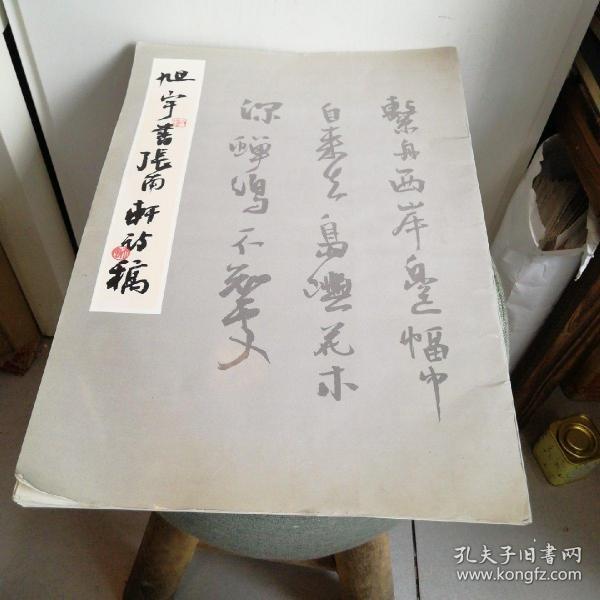 旭宇書張雨軒詩稿
繫舟西岸邊幅巾
自來去島嶼花木
深蟬鳴不知處
孔夫子旧书网
www.kongfz.com